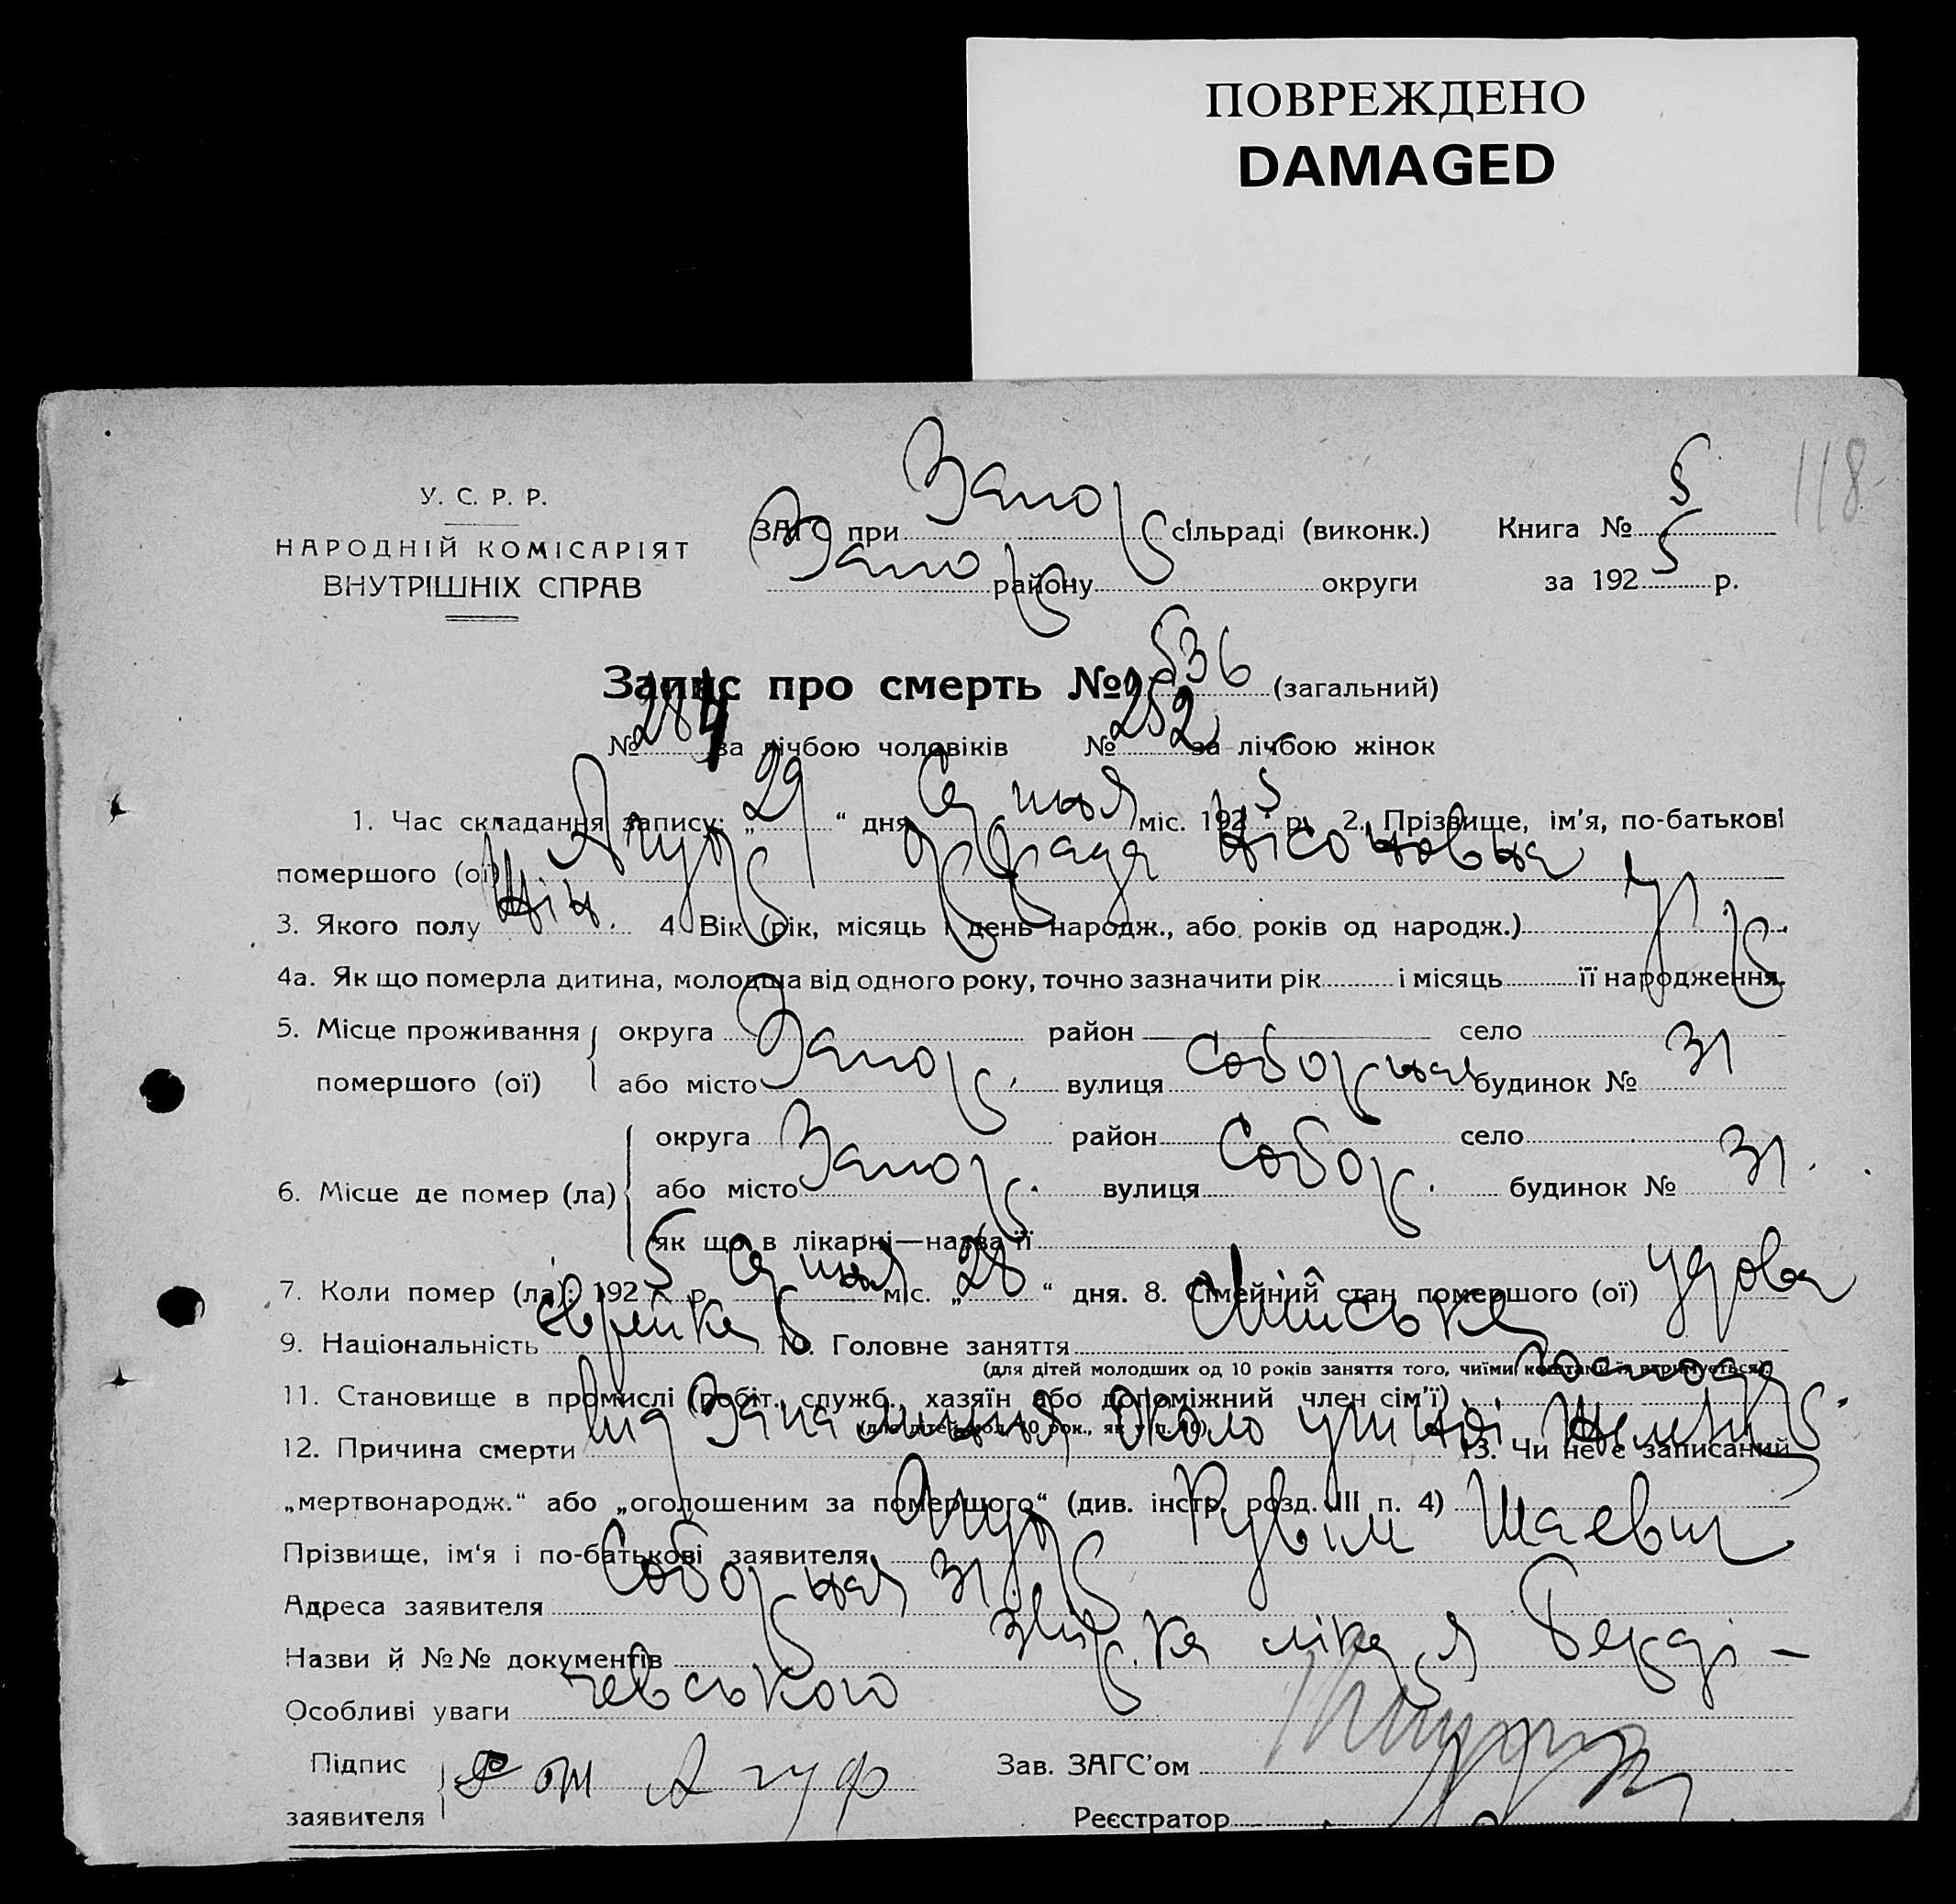 ПОВРЕЖДЕНО
DAMAGED
118
У. С. Р. Р.
НАРОДНІЙ КОМІСАРІЯТ
ВНУТРІШНІХ СПРАВ
ЗАГС при Запор сільраді (виконк.) Книга № 5
Запор району округи за 1925 р.
Запис про смерть № 536 (загальний)
№ 284 за лічбою чоловіків № 252 за лічбою жінок
1. Час складання запису: „29“ дня Серпня міс. 1925 р. 2. Прізвище, ім'я, по-батькові
помершого (ої)
3. Якого полу Жін. 4 Вік (рік, місяць і день народж., або років од народж.)
4а. Як що померла дитина, молодша від одного року, точно зазначити рік і місяць її народження.
5. Місце проживання округа район село
помершого (ої) або місто Запор. вулиця Соборная будинок № 31
округа район село
6. Місце де помер (ла) або місто Запор. вулиця Собор. будинок № 31.
як що в лікарні—назва її
7. Коли помер (ла): 1925 р. Серпня міс. „28“ дня. 8. Сімейний стан помершого (ої) удова
9. Національність Єврейка 10. Головне заняття
(для дітей молодших од 10 років заняття того, чиїми коштами їх втримується).
11. Становище в промислі (робіт., служб., хазяїн або допоміжний член сім'ї)
(для дітей мол. 10 рок., як у п. 10)
12. Причина смерти від Запалення 13. Чи не є записаний
„мертвонародж.“ або „оголошеним за помершого“ (див. інстр. розд. III п. 4)
Прізвище, ім'я і по-батькові заявителя Рувім Шаевич
Адреса заявителя Соборная 31
Назви й №№ документів лікаря Берді-
Особливі уваги чевського
Підпис
заявителя
Зав. ЗАГС'ом
Реєстратор